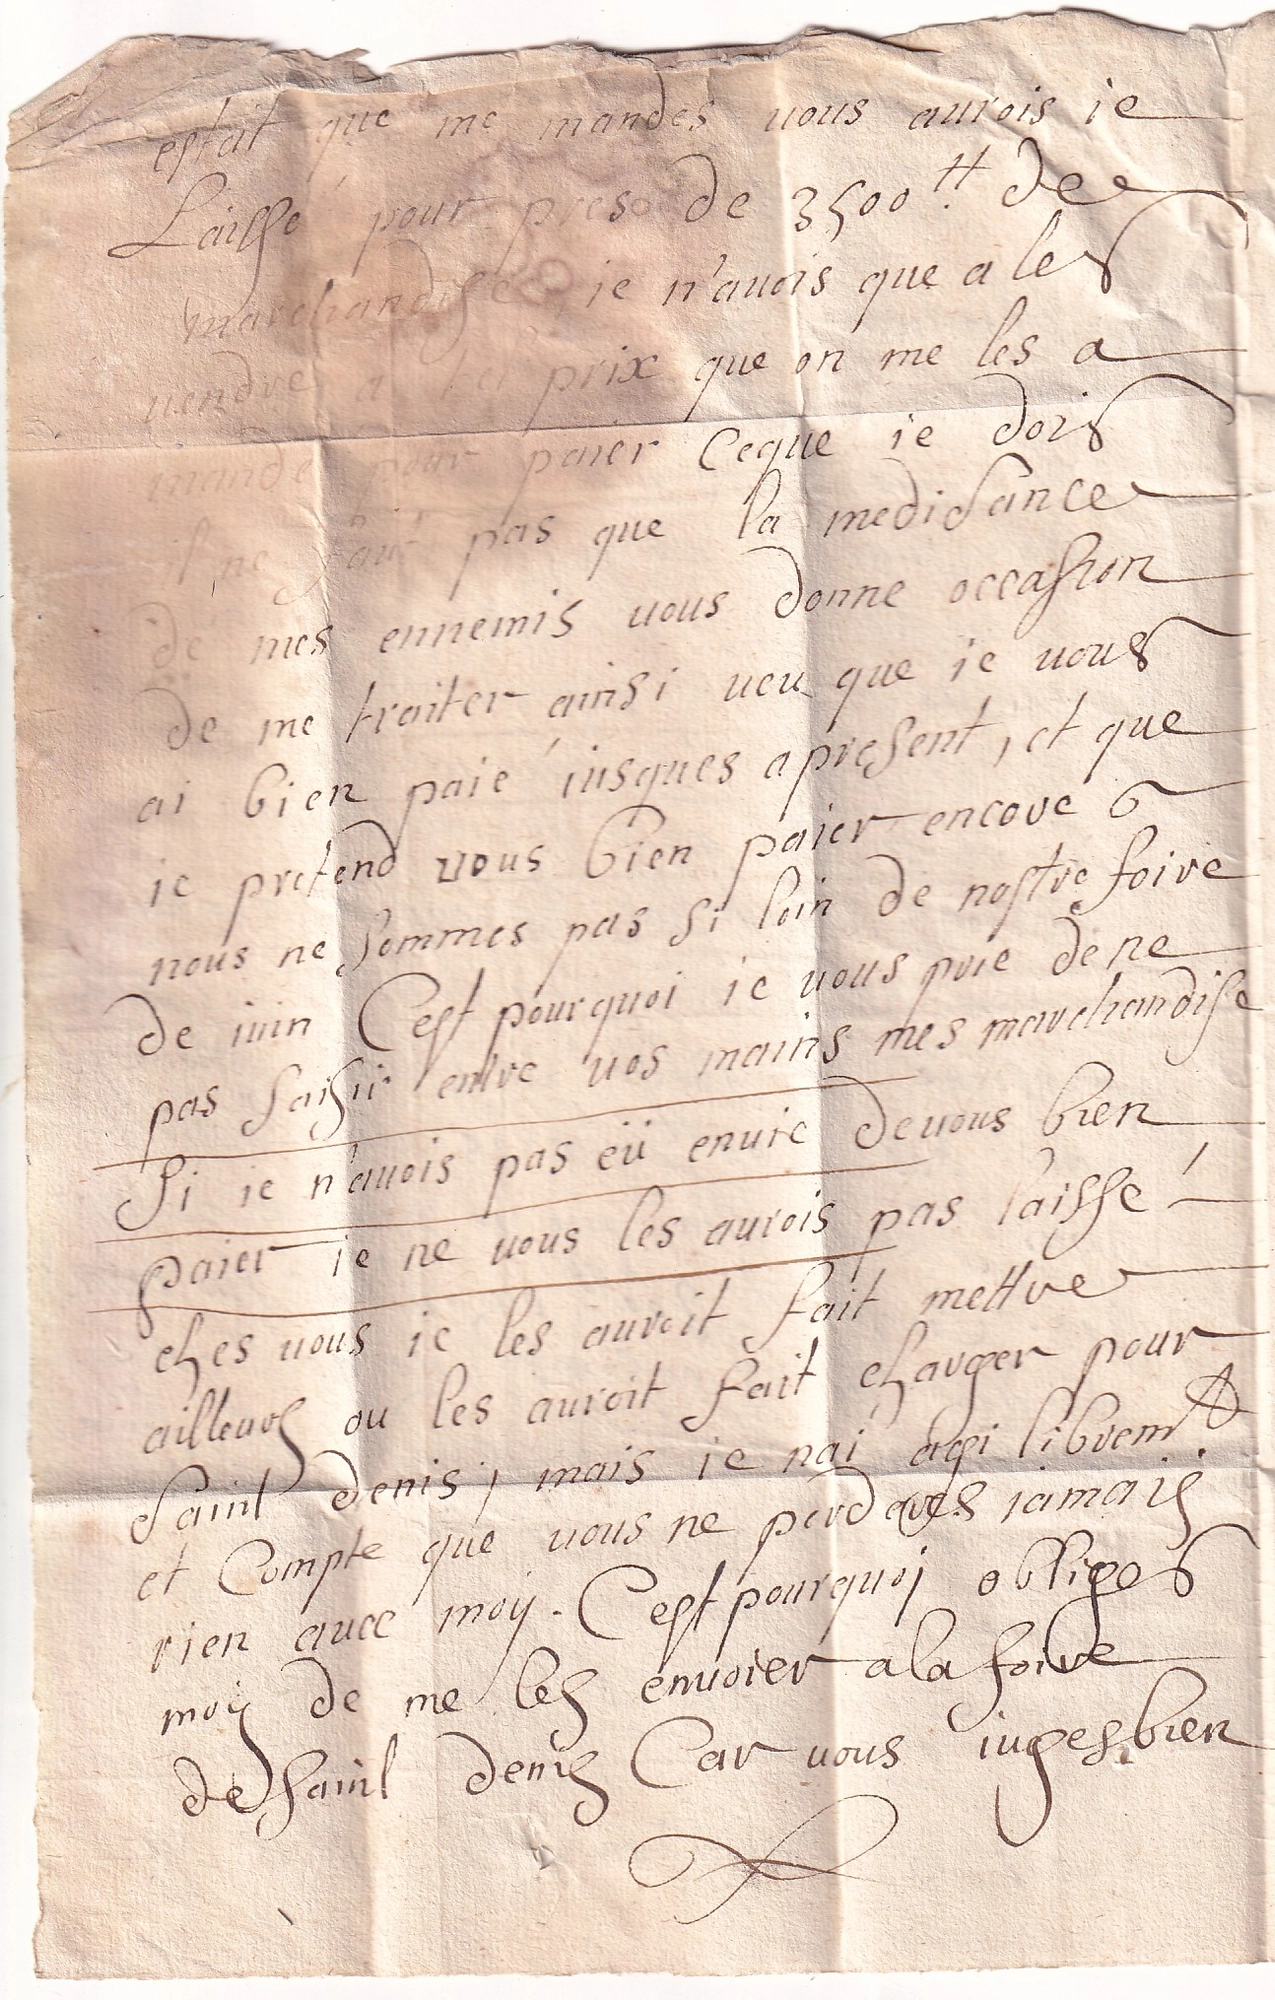 estat que me mandes vous aurois ie
Laissé pour pres de 3500 ₶ de
marchandise, ie n'auois que a les
uendre a prix que on me les a
mandé pour paier Ceque ie dois
il ne faut pas que la medisance
de mes ennemis uous donne occasion
de me traiter ainsi ueu que ie uous
ai bien paié iusques apresent, et que
ie pretend vous bien paier encore
nous ne sommes pas si loin de nostre foire
de iuin Cest pourquoi ie uous prie dene
pas saisir entre uos mains mes marchandise
Si ie n'auois pas eü enuie deuous bien
paier ie ne uous les aurois pas laissé
ches uous ie les auroit fait mettre
ailleurs ou les auroit fait charger pour
Saint denis, mais ie nai agi librem.t
et Compte que uous ne perdres iamais
rien auec moy. Cest pourquoi obliges
moy de me les enuoier ala foire
deSaint denis Car uous iugesbien